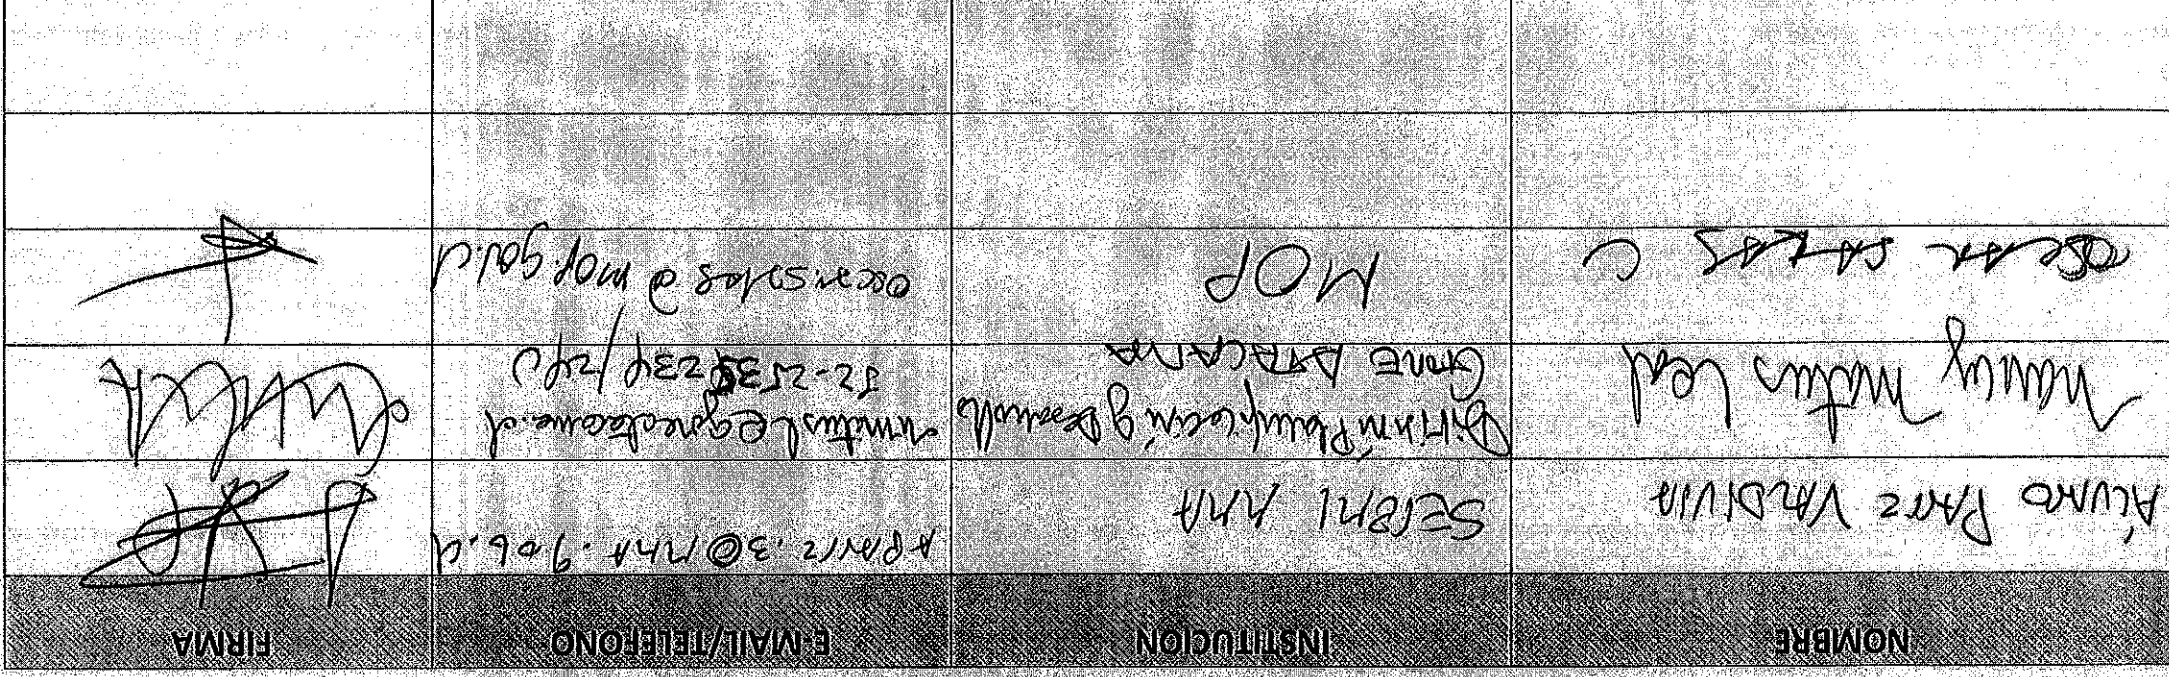 NOMBRE INSTITUCION E-MAIL/TELEFONO FIRMA
ÁLVARO PARRE VALDIVIA SEREMI MMA
Nancy Matus Leal División Planificación y Desarrollo nmatusl@goreatacama.cl
GORE ATACAMA 52-2535234/240
OSCAR SALAS C MOP oscar.salas@mop.gov.cl